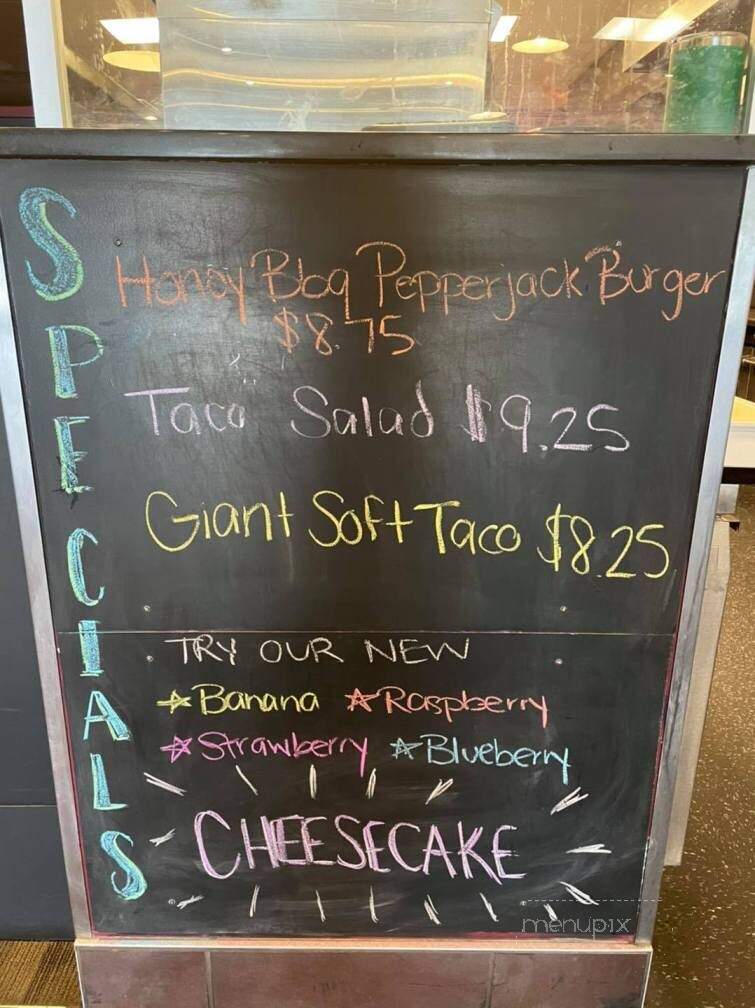 SPECIALS
Honey Bbq Pepperjack Burger
$8.75
Taco Salad $9.25
Giant Soft Taco $8.25
TRY OUR NEW
Banana Raspberry
Strawberry Blueberry
CHEESECAKE
menupix